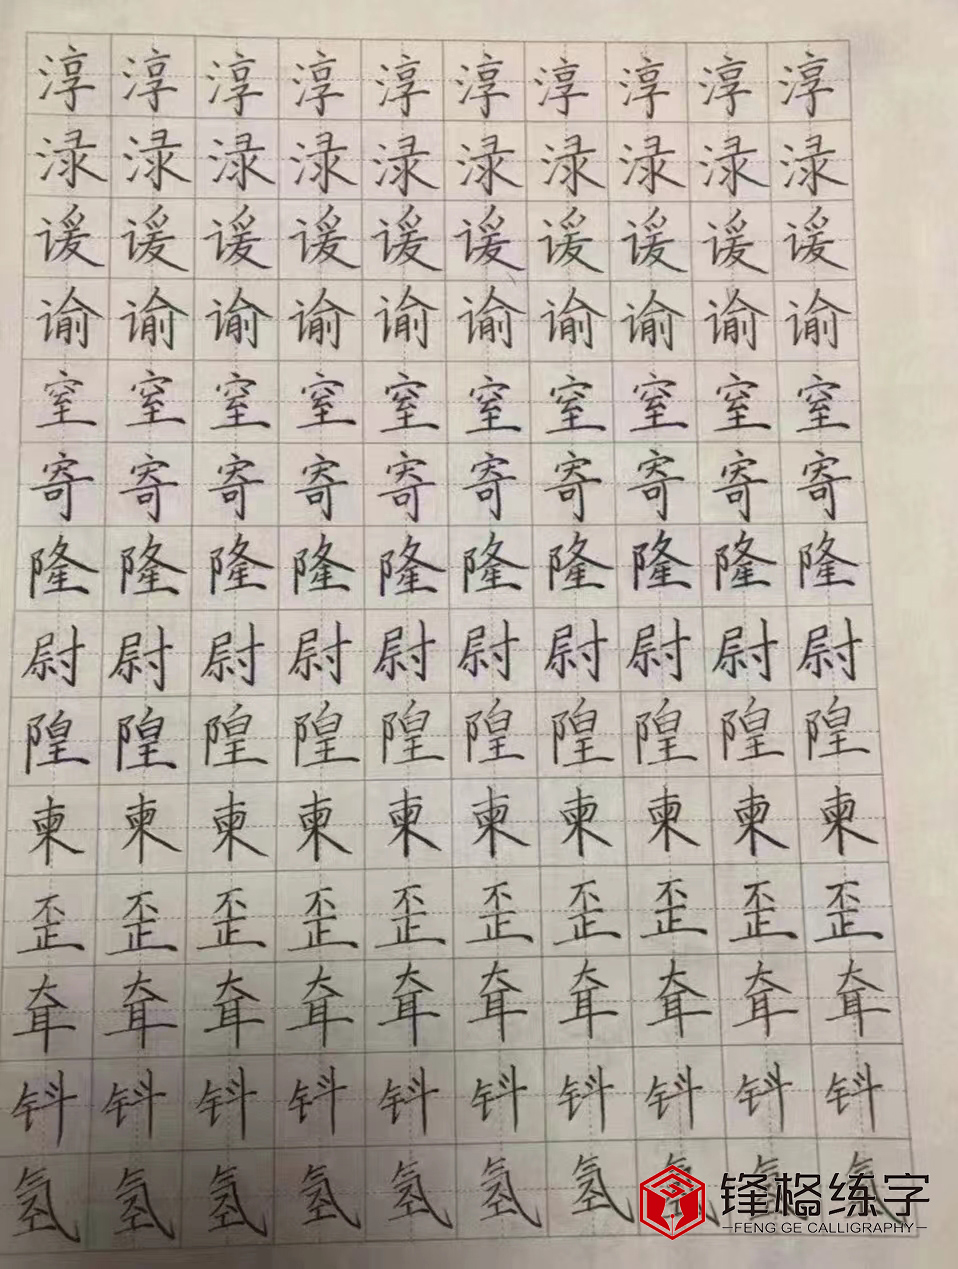 淳淳淳淳淳淳淳淳淳淳
渌渌渌渌渌渌渌渌渌渌
谖谖谖谖谖谖谖谖谖谖
谕谕谕谕谕谕谕谕谕谕
窒窒窒窒窒窒窒窒窒窒
寄寄寄寄寄寄寄寄寄寄
隆隆隆隆隆隆隆隆隆隆
尉尉尉尉尉尉尉尉尉尉
隍隍隍隍隍隍隍隍隍隍
柬柬柬柬柬柬柬柬柬柬
歪歪歪歪歪歪歪歪歪歪
耷耷耷耷耷耷耷耷耷耷
钭钭钭钭钭钭钭钭钭钭
氢氢氢氢氢氢氢
锋格练字
FENG GE CALLIGRAPHY